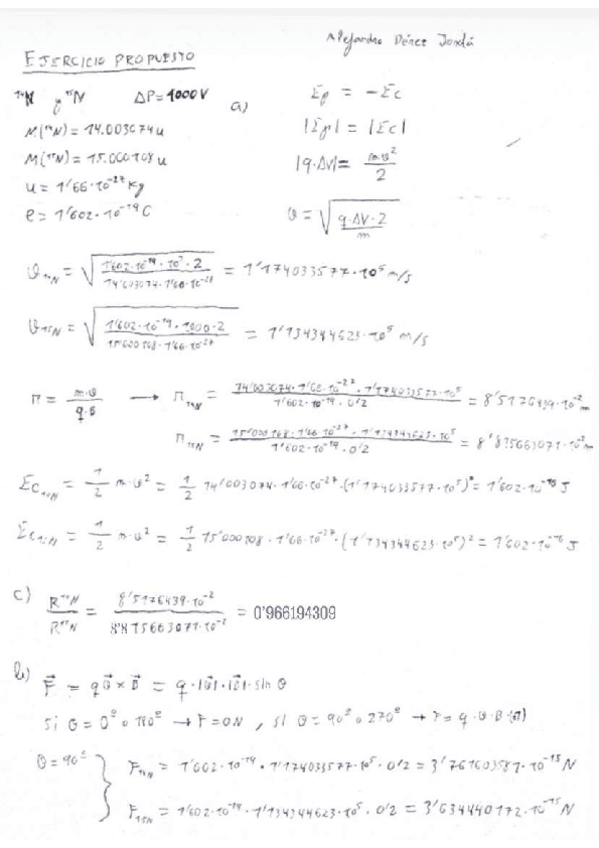 Alejandro Pérez Jordá
EJERCICIO PROPUESTO
¹⁴N y ¹⁵N ΔP = 1000 V
M(¹⁴N) = 14.003074 u
M(¹⁵N) = 15.000108 u
u = 1'66·10⁻²⁷ kg
e = 1'602·10⁻¹⁹ C
a) Ep = -Ec
|Ep| = |Ec|
|q·ΔV| = m·v² / 2
v = √(q·ΔV·2 / m)
v₁₄N = √(1'602·10⁻¹⁹·10³·2 / 14'003074·1'66·10⁻²⁷) = 1'174033577·10⁵ m/s
v₁₅N = √(1'602·10⁻¹⁹·1000·2 / 15'000108·1'66·10⁻²⁷) = 1'134344623·10⁵ m/s
r = m·v / q·B → r₁₄N = 14'003074·1'66·10⁻²⁷·1'174033577·10⁵ / 1'602·10⁻¹⁹·0'2 = 8'5176439·10⁻² m
r₁₅N = 15'000108·1'66·10⁻²⁷·1'134344623·10⁵ / 1'602·10⁻¹⁹·0'2 = 8'815663071·10⁻² m
Ec₁₄N = 1/2 m·v² = 1/2 14'003074·1'66·10⁻²⁷·(1'174033577·10⁵)² = 1'602·10⁻¹⁶ J
Ec₁₅N = 1/2 m·v² = 1/2 15'000108·1'66·10⁻²⁷·(1'134344623·10⁵)² = 1'602·10⁻¹⁶ J
c) R¹⁴N / R¹⁵N = 8'5176439·10⁻² / 8'815663071·10⁻² = 0'966194309
b) F = qv × B = q·|v|·|B|·sin θ
si θ = 0º o 180º → F = 0N, si θ = 90º o 270º → F = q·v·B·(±1)
θ = 90º } F₁₄N = 1'602·10⁻¹⁹·1'174033577·10⁵·0'2 = 3'761603581·10⁻¹⁵ N
F₁₅N = 1'602·10⁻¹⁹·1'134344623·10⁵·0'2 = 3'634440172·10⁻¹⁵ N